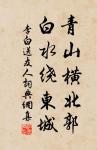 青山横北郭
白水绕东城
李白送友人詞典網集